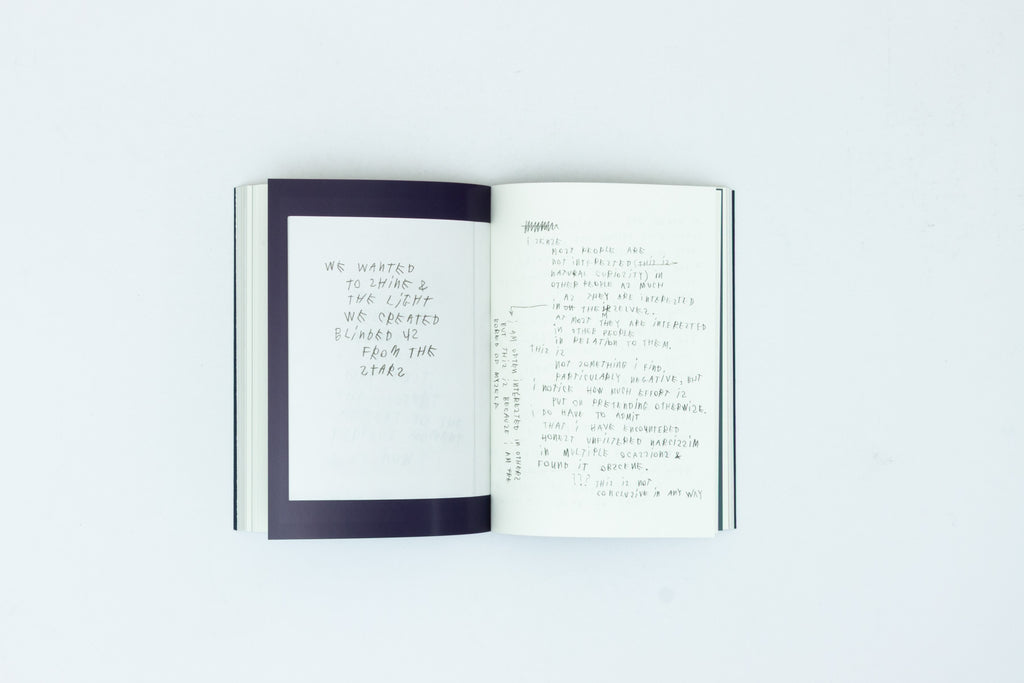 WE WANTED
TO SHINE &
THE LIGHT
WE CREATED
BLINDED US
FROM THE
STARS
I SENSE
MOST PEOPLE ARE
NOT INTERESTED (THIS IS
NATURAL CURIOSITY) IN
OTHER PEOPLE AS MUCH
AS THEY ARE INTERESTED
IN THEIRSELVES.
AS MOST THEY ARE INTERESTED
IN OTHER PEOPLE
IN RELATION TO THEM.
THIS IS
NOT SOMETHING I FIND
PARTICULARLY NEGATIVE, BUT
I NOTICE HOW MUCH EFFORT IS
PUT ON PRETENDING OTHERWISE.
I DO HAVE TO ADMIT
THAT I HAVE ENCOUNTERED
HONEST UNFILTERED NARCISSISM
IN MULTIPLE OCASSIONS &
FOUND IT OBSCENE.
??? THIS IS NOT
CONCLUSIVE IN ANY WAY
I AM OFTEN INTERESTED IN OTHERS
BUT THIS IS BECAUSE I AM
BORED OF MYSELF